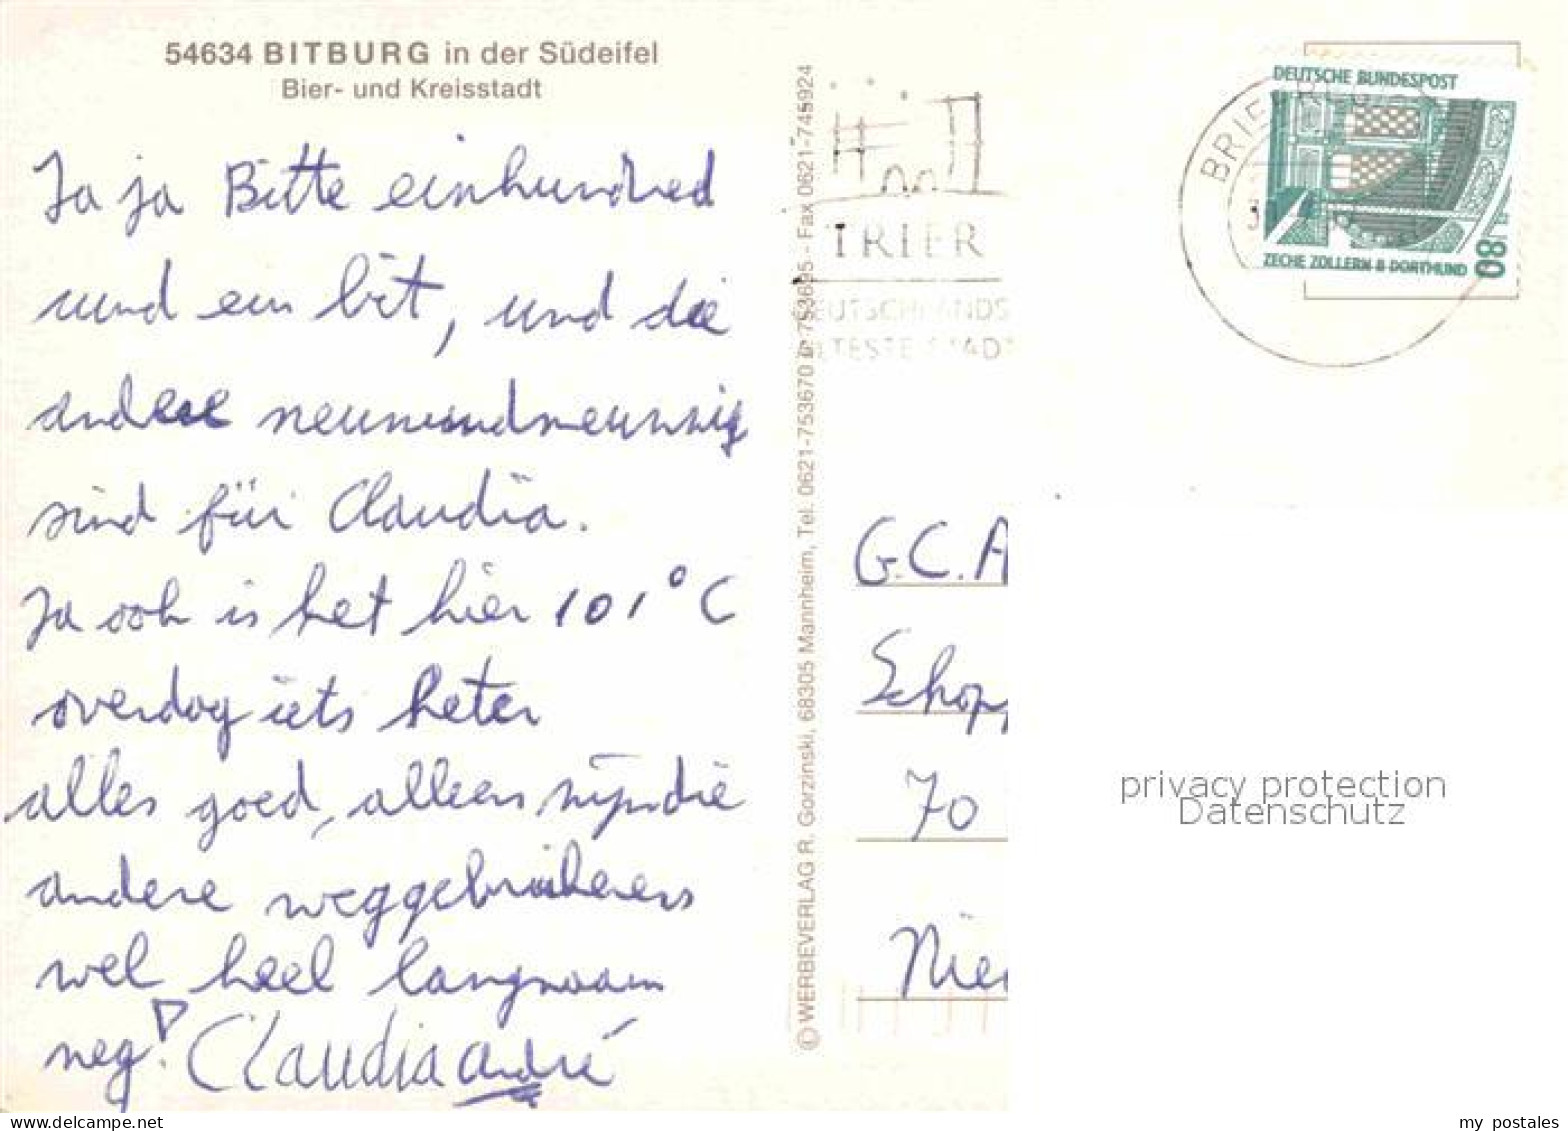 54634 BITBURG in der Südeifel
Bier- und Kreisstadt
Ja ja Bitte einhundred
und ein bit, und die
andere neunundneunzig
sind für Claudia.
Ja ook is het hier 101°C
overdag iets heter
alles goed, alleen zijn die
andere weggebruikers
wel heel langzaam
neg! Claudia André
© WERBEVERLAG R. Gorzinski, 68305 Mannheim, Tel. 0621-753670 753695 - Fax 0621-745924
TRIER
DEUTSCHLANDS
ÄLTESTE STADT
DEUTSCHE BUNDESPOST
ZECHE ZOLLERN II DORTMUND
80
BRIE
G.C.A
Schop
70
Nie
privacy protection
Datenschutz
delcampe.net
my_postales